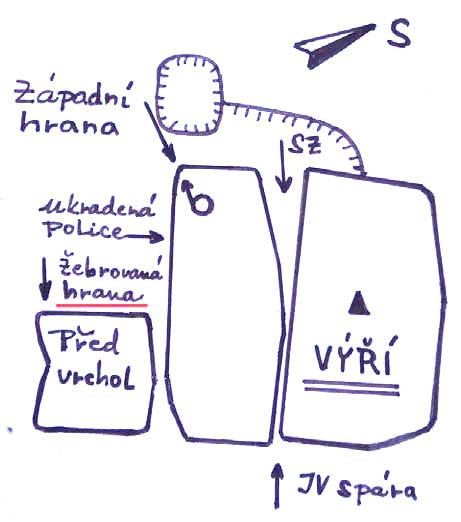 S
Západní
hrana
SZ
ukradená
Police
Žebrovaná
hrana
Před
vrchol
VÝŘÍ
JV spára